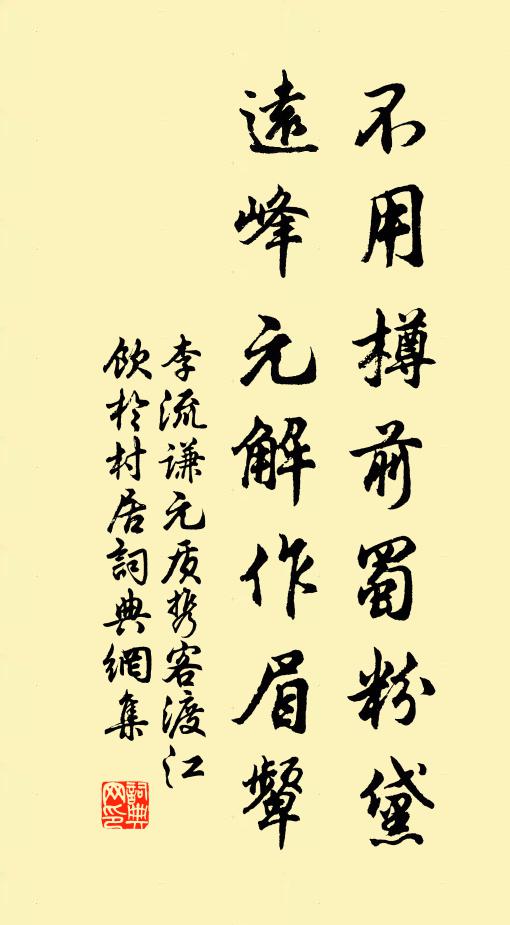 不用樽前蜀粉黛
遠峰元解作眉顰
李流谦元质携客渡江
飲於村居詞典網集
詞典
网印